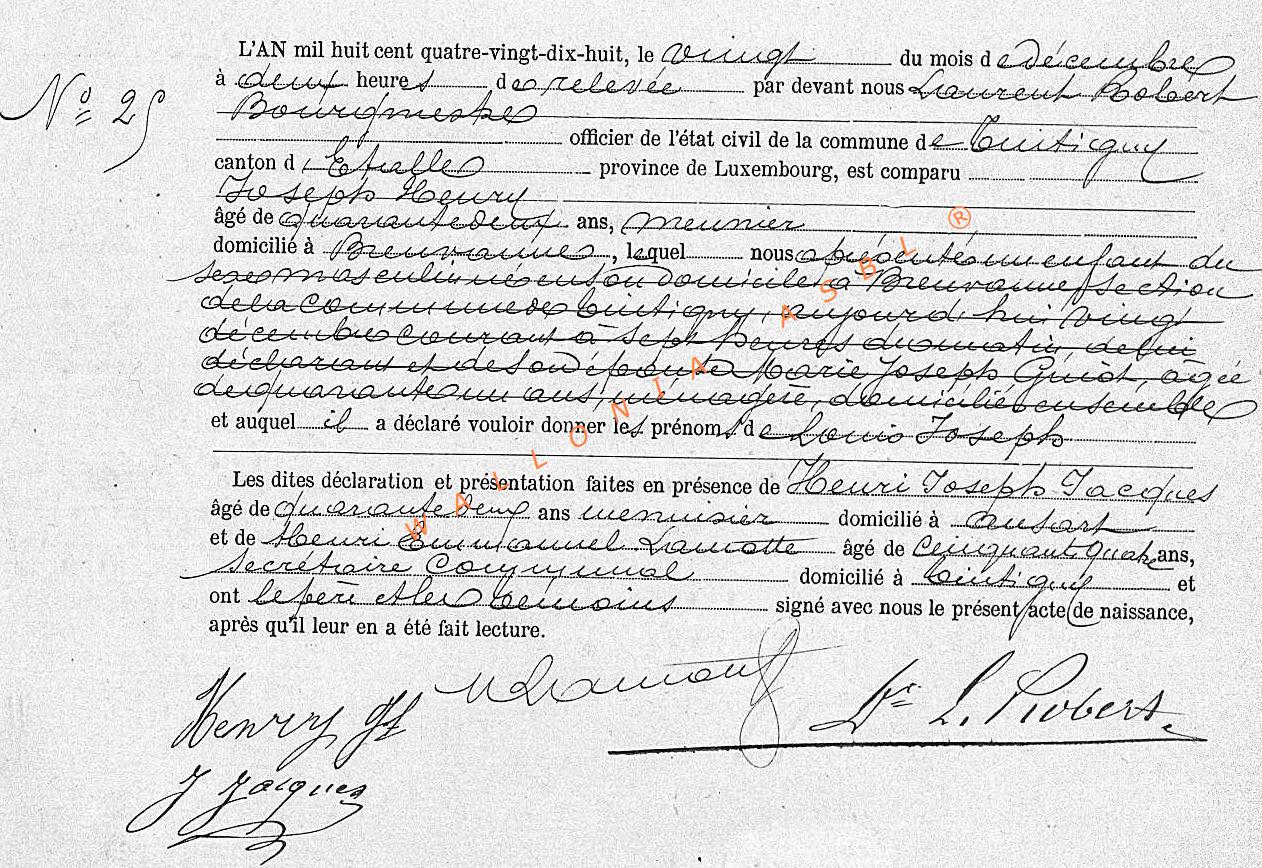 L'AN mil huit cent quatre-vingt-dix-huit, le vingt du mois de décembre
N° 25
à deux heures de relevée par devant nous Laurent Robert
Bourgmestre
officier de l'état civil de la commune de Tintigny
canton d'Etalle province de Luxembourg, est comparu
Joseph Henry
âgé de quarante deux ans, meunier
domicilié à Breuvanne, lequel nous a présenté un enfant du
sexe masculin né en son domicile à Breuvanne, section
de la commune de Tintigny, aujourd'hui vingt
décembre courant à sept heures du matin, de lui
déclarant et de son épouse Marie Joseph Guiot, agée
de quarante un ans, ménagère, domiciliés ensemble
et auquel il a déclaré vouloir donner les prénoms de Louis Joseph
Les dites déclaration et présentation faites en présence de Henri Joseph Jacques
âgé de quarante deux ans menuisier domicilié à ansart
et de Henri Emmanuel Lamotte âgé de Cinquant quatre ans,
secrétaire Communal domicilié à Tintigny et
ont le père et les témoins signé avec nous le présent acte de naissance,
après qu'il leur en a été fait lecture.
Henry Jf
Dr L. Robert
J Jacques
WALLONIA ASBL ®